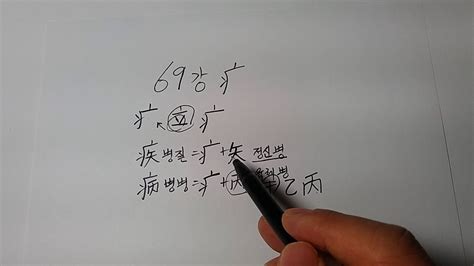 69강 疒
疒 立 疒
疾 병질 = 疒 + 矢 정신병
病 병병 = 疒 + 丙 乙 丙